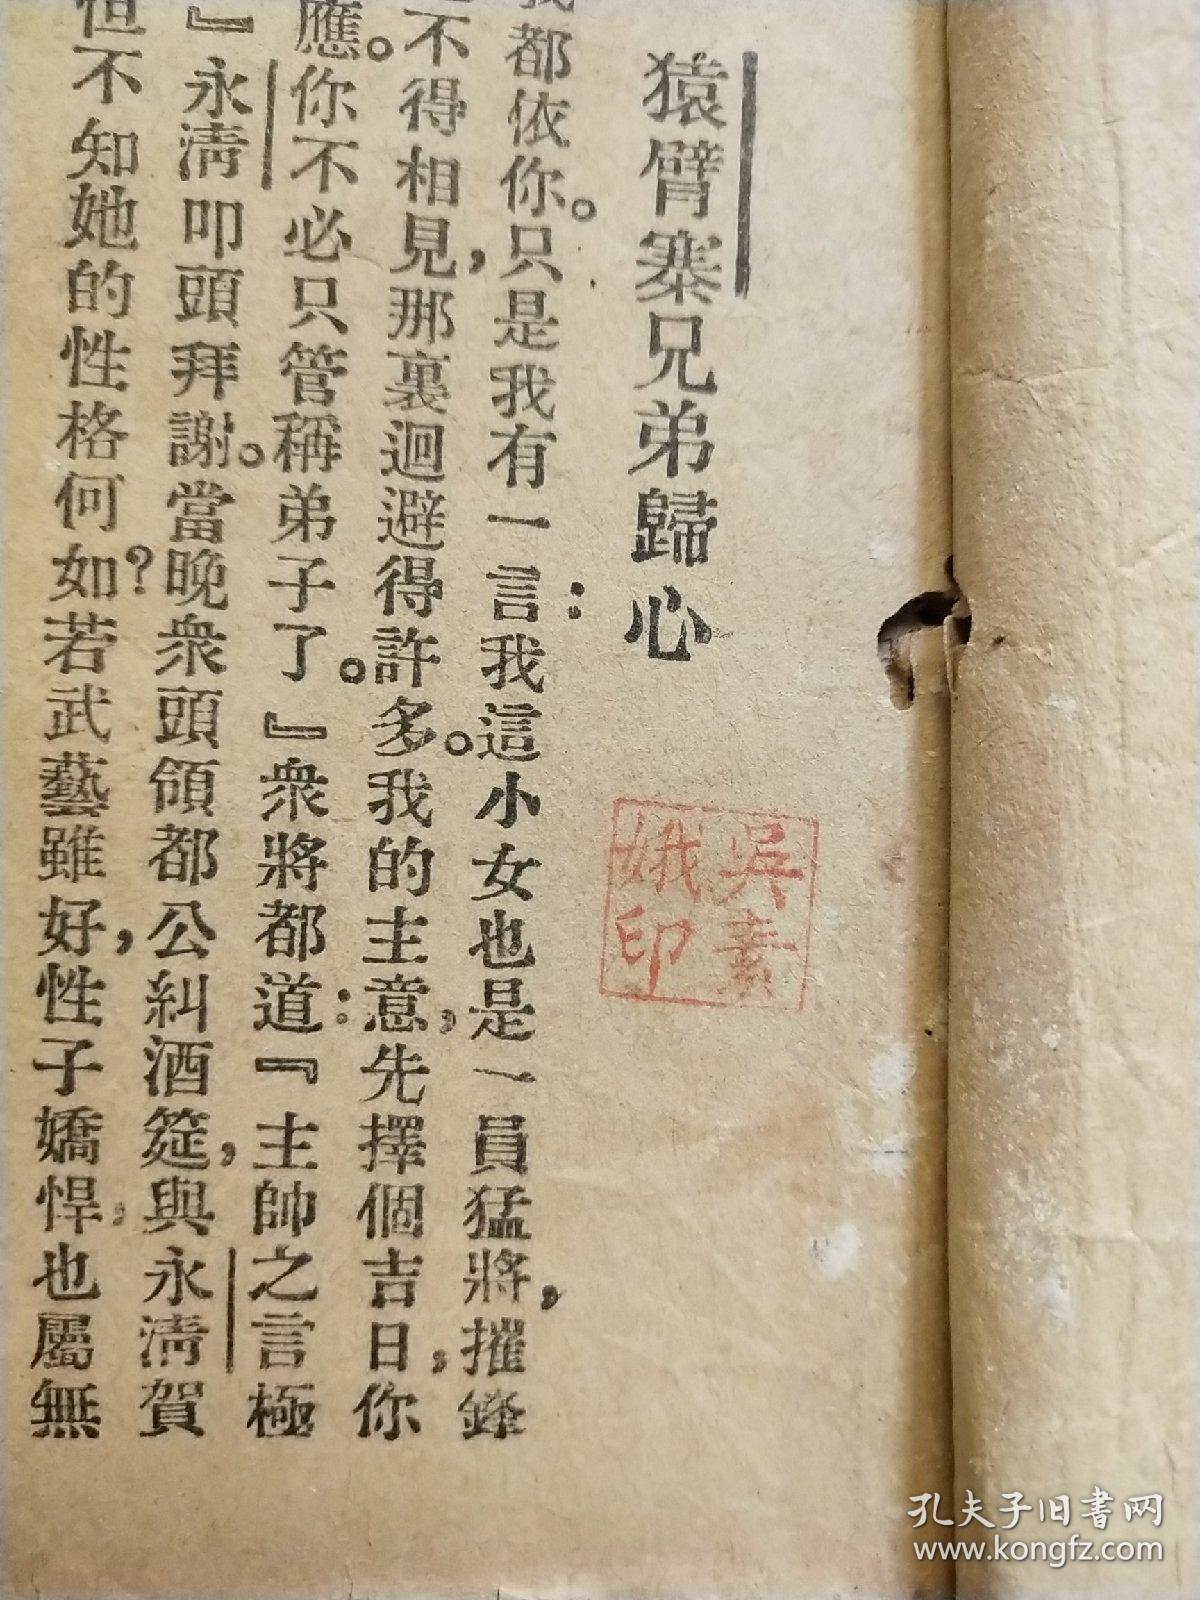 猿臂寨兄弟歸心
都依你。只是我有一言：我這小女也是一員猛將，摧鋒
不得相見，那裏迴避得許多。我的主意，先擇個吉日，你
應。你不必只管稱弟子了。』衆將都道：『主帥之言極
』永淸叩頭拜謝。當晚衆頭領都公糾酒筵，與永淸賀
但不知她的性格何如？若武藝雖好，性子嬌悍，也屬無
吳素
娥印
孔夫子旧書网
www.kongfz.com